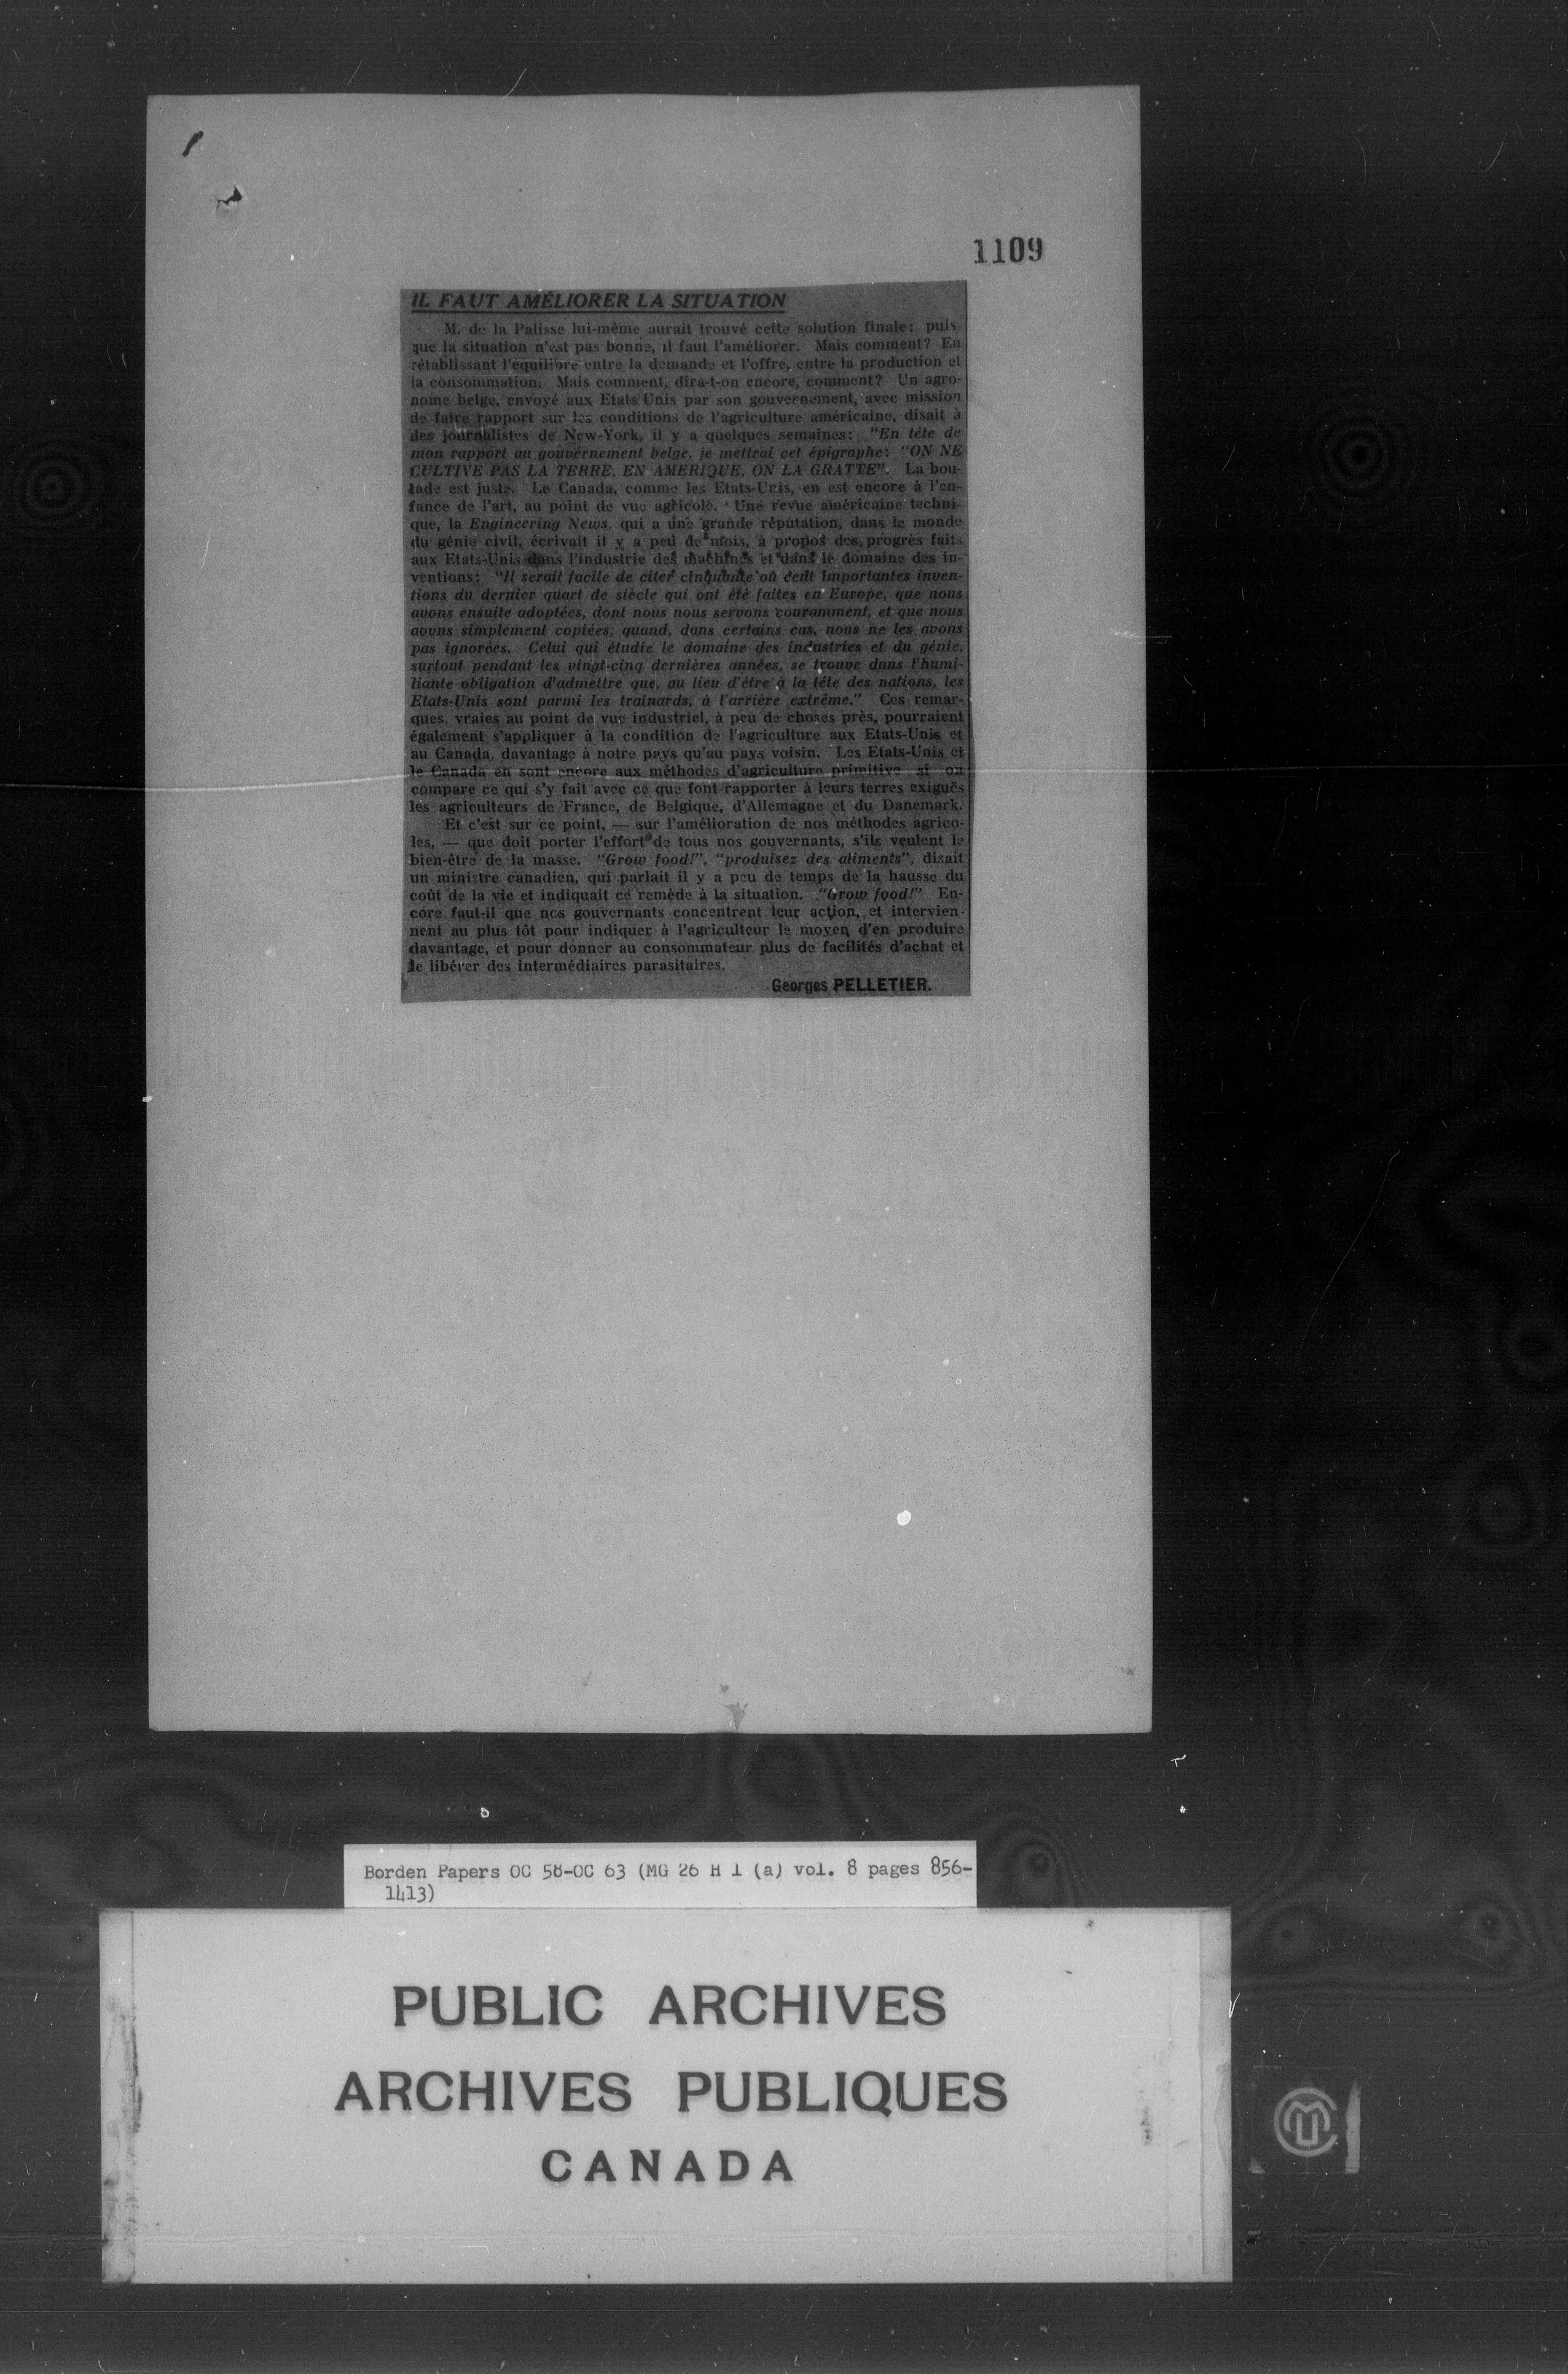 1109
IL FAUT AMÉLIORER LA SITUATION
M. de la Palisse lui-même aurait trouvé cette solution finale: puis-
que la situation n'est pas bonne, il faut l'améliorer. Mais comment? En
rétablissant l'équilibre entre la demande et l'offre, entre la production et
la consommation. Mais comment, dira-t-on encore, comment? Un agro-
nome belge, envoyé aux Etats Unis par son gouvernement, avec mission
de faire rapport sur les conditions de l'agriculture américaine, disait à
des journalistes de New-York, il y a quelques semaines: "En tête de
mon rapport au gouvernement belge, je mettrai cet épigraphe: "ON NE
CULTIVE PAS LA TERRE, EN AMERIQUE, ON LA GRATTE". La bou-
tade est juste. Le Canada, comme les Etats-Unis, en est encore à l'en-
fance de l'art, au point de vue agricole. Une revue américaine techni-
que, la Engineering News, qui a une grande réputation, dans le monde
du génie civil, écrivait il y a peu de mois, à propos des progrès faits
aux Etats-Unis dans l'industrie des machines et dans le domaine des in-
ventions: "Il serait facile de citer cinquante ou cent importantes inven-
tions du dernier quart de siècle qui ont été faites en Europe, que nous
avons ensuite adoptées, dont nous nous servons couramment, et que nous
avons simplement copiées, quand, dans certains cas, nous ne les avons
pas ignorées. Celui qui étudie le domaine des industries et du génie,
surtout pendant les vingt-cinq dernières années, se trouve dans l'humi-
liante obligation d'admettre que, au lieu d'être à la tête des nations, les
Etats-Unis sont parmi les trainards, à l'arrière extrême." Ces remar-
ques, vraies au point de vue industriel, à peu de choses près, pourraient
également s'appliquer à la condition de l'agriculture aux Etats-Unis et
au Canada, davantage à notre pays qu'au pays voisin. Les Etats-Unis et
le Canada en sont encore aux méthodes d'agriculture primitive si on
compare ce qui s'y fait avec ce que font rapporter à leurs terres exiguës
les agriculteurs de France, de Belgique, d'Allemagne et du Danemark.
Et c'est sur ce point, — sur l'amélioration de nos méthodes agrico-
les, — que doit porter l'effort de tous nos gouvernants, s'ils veulent le
bien-être de la masse. "Grow food!", "produisez des aliments", disait
un ministre canadien, qui parlait il y a peu de temps de la hausse du
coût de la vie et indiquait ce remède à la situation. "Grow food!" En-
core faut-il que nos gouvernants concentrent leur action, et intervien-
nent au plus tôt pour indiquer à l'agriculteur le moyen d'en produire
davantage, et pour donner au consommateur plus de facilités d'achat et
le libérer des intermédiaires parasitaires.
Georges PELLETIER.
Borden Papers OC 58-OC 63 (MG 26 H 1 (a) vol. 8 pages 856-
1413)
PUBLIC ARCHIVES
ARCHIVES PUBLIQUES
CANADA